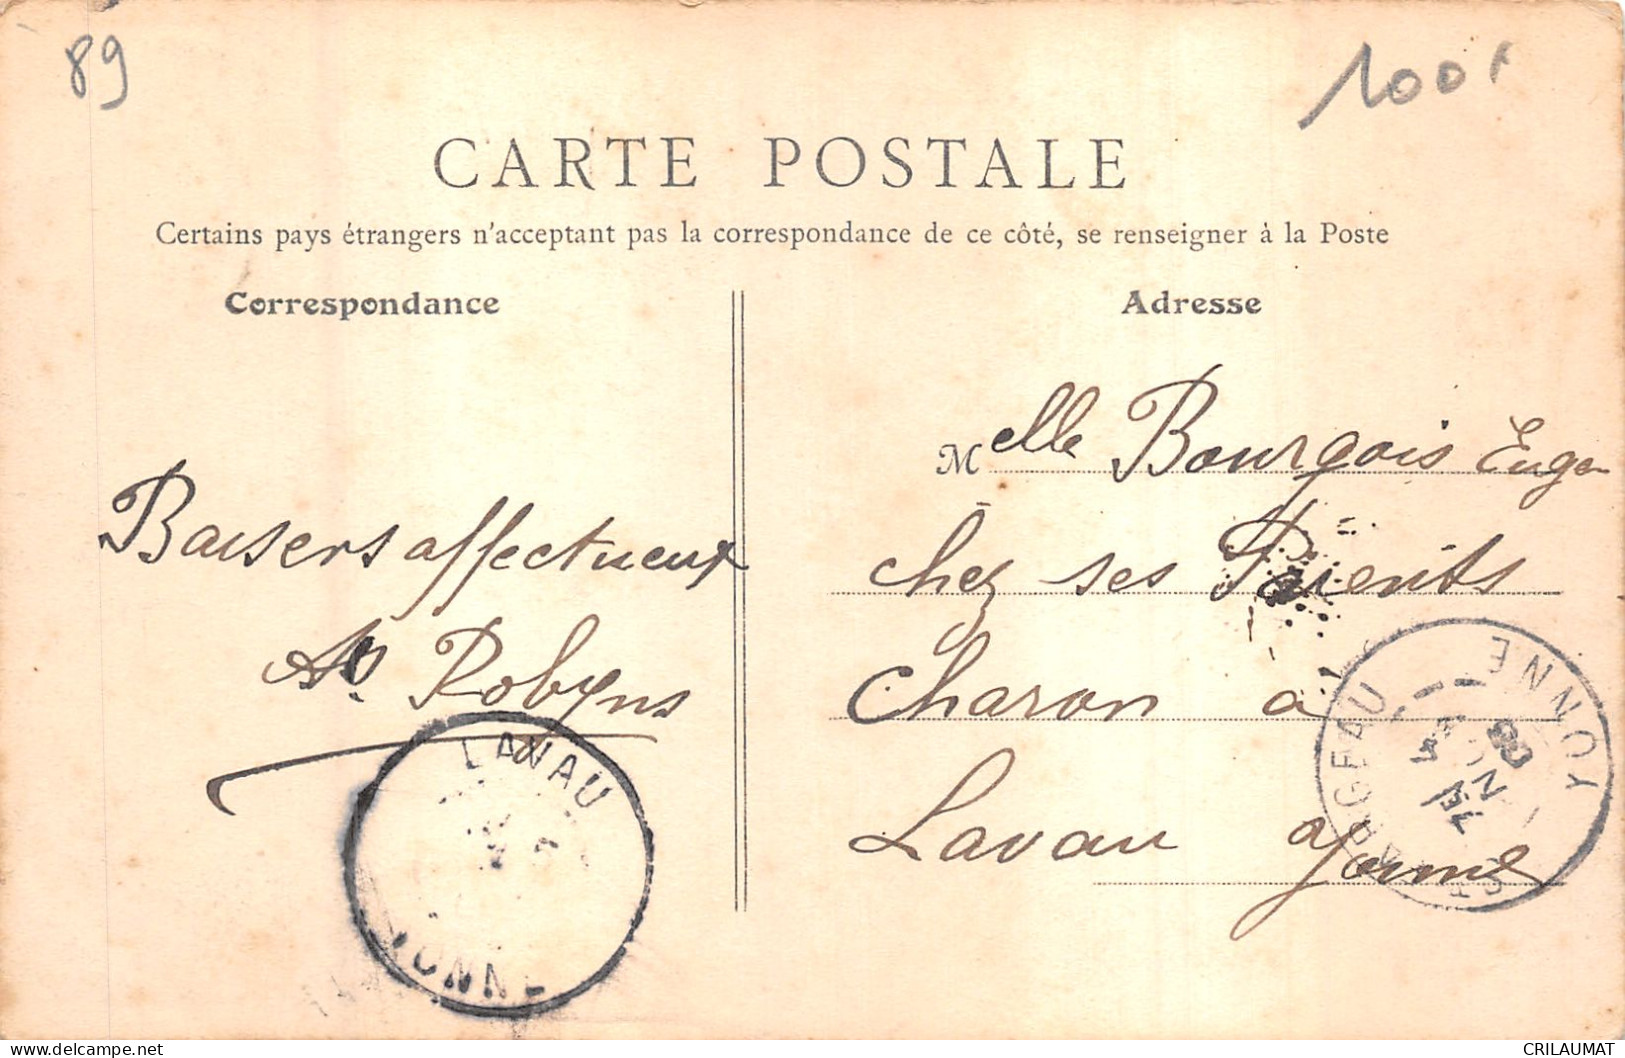 89
100f
CARTE POSTALE
Certains pays étrangers n'acceptant pas la correspondance de ce côté, se renseigner à la Poste
Correspondance
Adresse
Baisers affectueux
Robyns
Melle Bourgois Eugen
chez ses Parents
Charon a
Lavau Yonne
LAVAU
YONNE
YONNE
CRILAUMAT